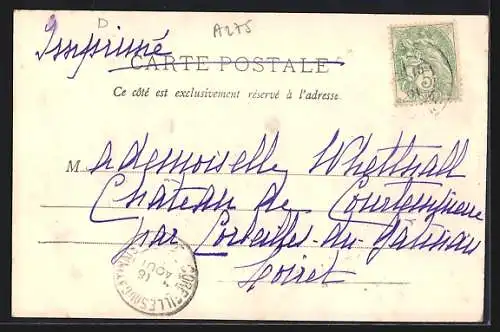 D
A275
Imprimé
CARTE POSTALE
Ce côté est exclusivement réservé à l'adresse.
Mademoiselle Whettnall
Château de Courtempierre
par Corbeilles-du-Gâtinais
Loiret
CORBEILLES
16
AOUT
5